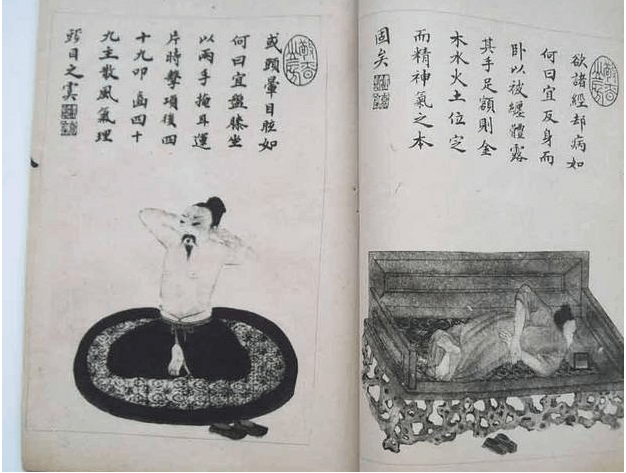 欲諸經却病如
何曰宜反身而
卧以被纏體露
其手足額則金
木水火土位定
而精神氣之本
固矣
或頭暈目眩如
何曰宜盤膝坐
以兩手掩耳運
片時擊項後四
十九叩齒四十
九主散風氣理
目之